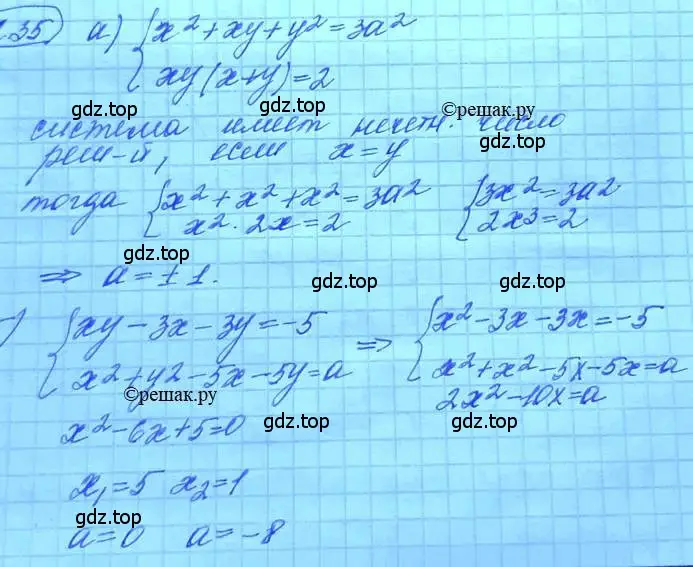 .35) а) { x² + xy + y² = 3a²
xy(x+y) = 2
gdz.top gdz.top ©решак.ру
система имеет нечетн. число
реш-й, если x = y
gdz.top gdz.top
тогда { x² + x² + x² = 3a² { 3x² = 3a²
x² · 2x = 2 2x3 = 2
gdz.top
⇒ a = ± 1.
gdz.top gdz.top
) { xy − 3x − 3y = −5 ⇒ { x² − 3x − 3x = −5
gdz.top
x² + y2 − 5x − 5y = a x² + x² − 5x − 5x = a
©решак.ру 2x² − 10x = a
x² − 6x + 5 = 0
gdz.top gdz.top
x₁ = 5 x₂ = 1
gdz.top
a = 0 a = −8